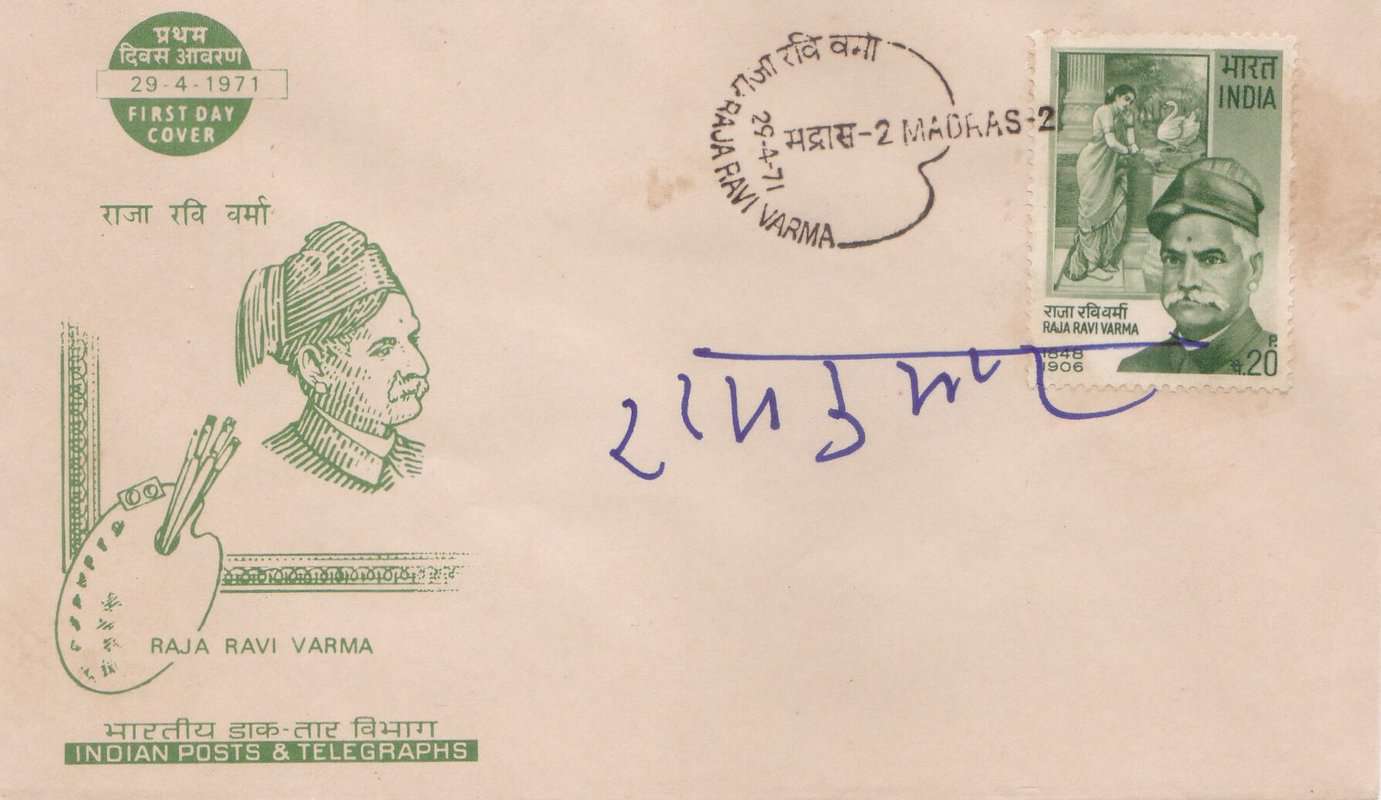 प्रथम
दिवस आवरण
29-4-1971
FIRST DAY
COVER
राजा रवि वर्मा
RAJA RAVI VARMA
भारतीय डाक-तार विभाग
INDIAN POSTS & TELEGRAPHS
राजा रवि वर्मा
29-4-71
मद्रास-2 MADRAS-2
RAJA RAVI VARMA
भारत
INDIA
राजा रवि वर्मा
RAJA RAVI VARMA
1848
1906
P.
पै.20
रामकुमार